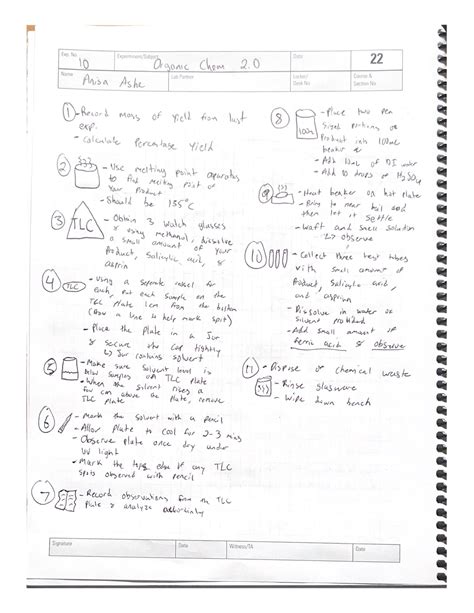 Exp. No.
Experiment/Subject
Date
22
10
Organic Chem 2.0
Name
Lab Partner
Locker/
Desk No.
Course &
Section No.
Ashe
1 - Record mass of yield from last
exp.
- Calculate Percentage Yield
2 - Use melting point apparatus
to find melting point of
Your Product
- Should be 135°C
3 TLC - Obtain 3 watch glasses
& using methanol, dissolve
a small amount of your
Product, Salicylic acid, &
aspirin
4 TLC - Using a separate
each, Put each sample on the
TLC Plate 1cm from the bottom
(Draw a line to help mark spot)
- Place the Plate in a Jar
& secure the tightly
↳ Jar contains solvent
5 - Make sure solvent level is
below samples on TLC Plate
- When the solvent rises a
few cm above the Plate, remove
TLC Plate
6 - Mark the solvent with a pencil
- Allow Plate to cool for 2-3 mins
- Observe Plate once dry under
UV light
- Mark the edge of any TLC
spots observed with pencil
7 - Record observations from the TLC
Plate & analyze accordingly
8 100mL - Place two pea
sized portions of
Product into 100mL
beaker
- Add 10mL of DI water
- Add 10 drops of H₂SO₄
9 - Heat beaker on hot plate
- Bring to near boil and
then let it settle
- Waft and smell solution
↳ observe
10 - Collect three test tubes
with small amount of
Product, Salicylic acid,
and aspirin
- Dissolve in water or
Solvent provided
- Add small amount of
ferric acid & observe
11 - Dispose of chemical waste
- Rinse glassware
- Wipe down bench
Signature
Date
Witness/TA
Date